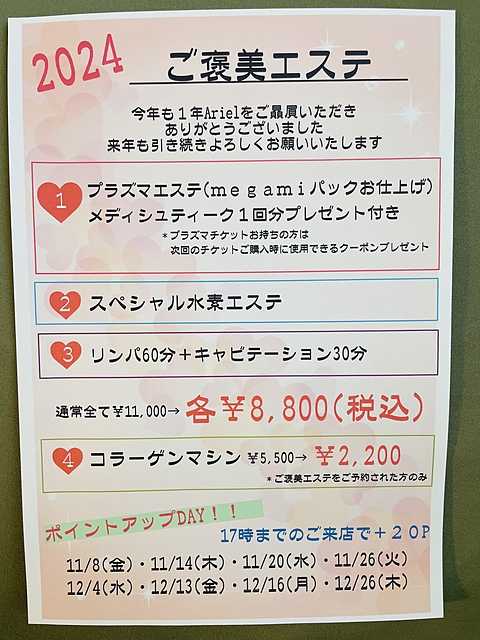 2024 ご褒美エステ
今年も１年Arielをご贔屓いただき
ありがとうございました
来年も引き続きよろしくお願いいたします
1 プラズマエステ(ｍｅｇａｍｉパックお仕上げ)
メディシュティーク１回分プレゼント付き
＊プラズマチケットお持ちの方は
次回のチケットご購入時に使用できるクーポンプレゼント
2 スペシャル水素エステ
3 リンパ60分＋キャビテーション30分
通常全て¥11,000→ 各￥8,800(税込)
4 コラーゲンマシン ¥5,500→ ￥2,200
＊ご褒美エステをご予約された方のみ
ポイントアップDAY！！
17時までのご来店で＋２０P
11/8(金)・11/14(木)・11/20(水)・11/26(火)
12/4(水)・12/13(金)・12/16(月)・12/26(木)